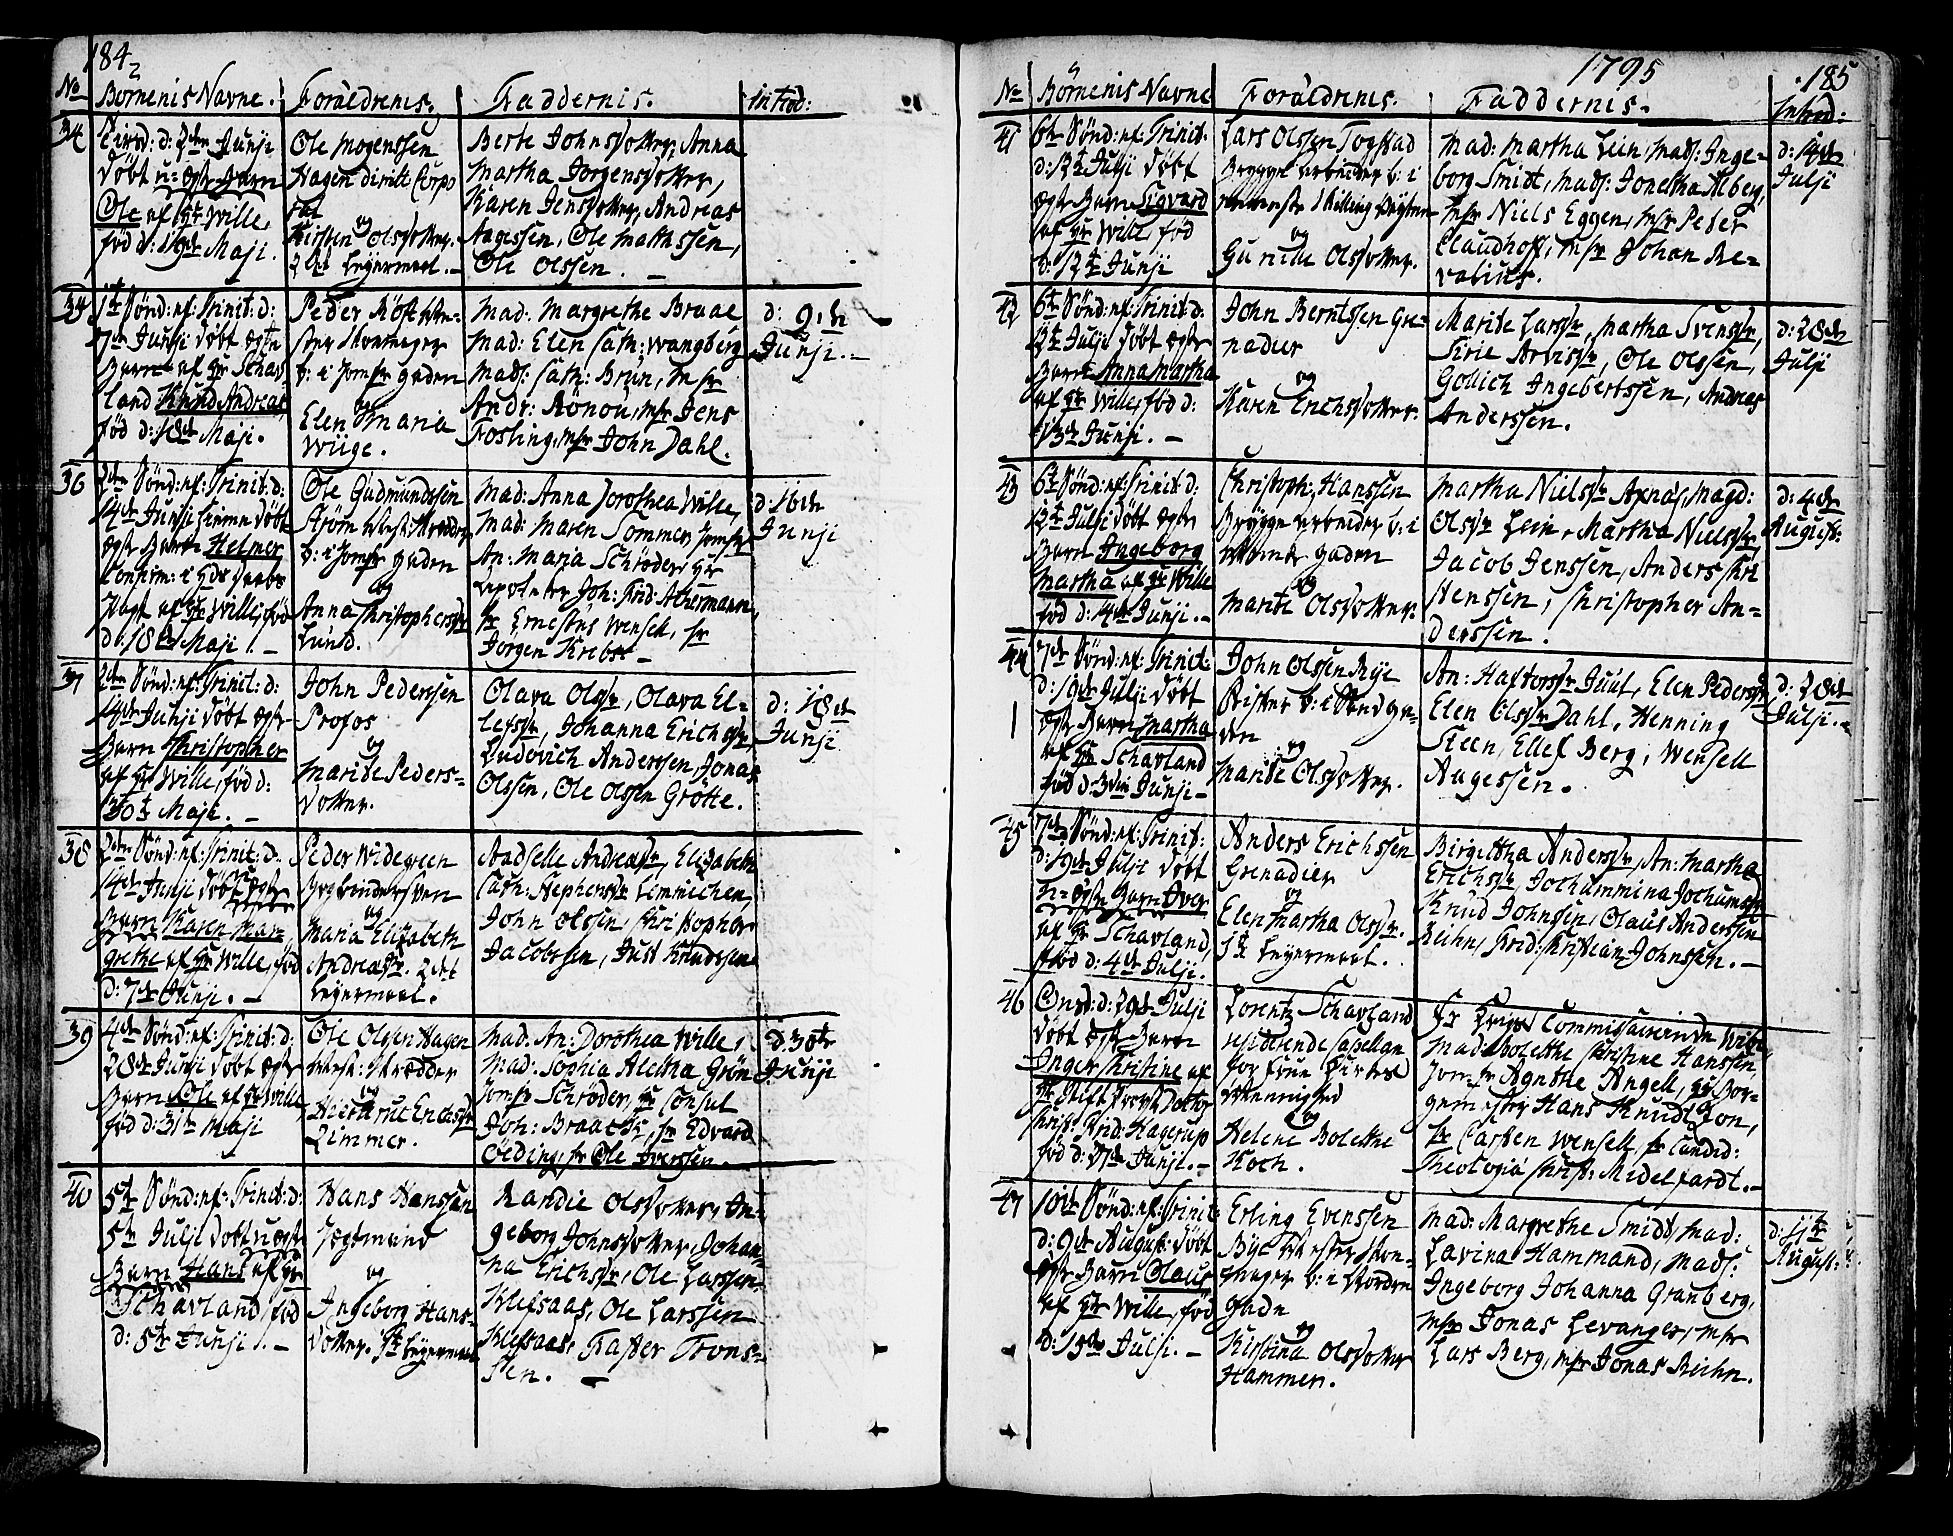 184
No
Börnenis Navne.
Forældrenis.
Faddernis.
introd:
34
d: 2den Junji
döbt u-ægte Barn
Ole af Hr Wille,
föd d: 19de Maji.
Ole Mogenssen
Hagen
og
Kirsten Olsdotter.
2det Leyermaal.
Berte Johnsdotter, Anna
Martha Jörgensdotter,
Karen Jensdotter, Andreas
Aagessen, Ole Mathssen,
Ole Olssen.
35
1te Sönd: ef: Trinit: d:
7de Junji döbt ægte
Barn af Hr Schav-
land Knud Andreas,
föd d: 18de Maji.
Peder
b: i Jomfr gaden
og
Elen Maria
Wiige.
Mad: Margrethe Braae
Mad: Elen Cath: Wangberg
Mads: Cath: Brun, Msr
Andr: Rönou, Msr Jens
Fosling, Msr John Dahl.
d: 9de
Junji.
36
2den Sönd: ef: Trinit: d:
14de Junji hiemme döbt
ægte Barn Helmer
Confirm: i
af Hr Wille, föd
d: 18de Maji.
Ole Gudmundssen
Ström
b: i Jomfr gaden
og
Anna Christophersdr
Lund.
Mad: Anna Dorothea Wille,
Mad: Maren Sommer, Jomfr
An: Maria Schröder, Hr
Joh: Frid: Ackermann,
Hr Ernestus Wensell, Hr
Jörgen Krebs
d: 16de
Junji
37
2den Sönd: ef: Trinit: d:
14de Junji döbt ægte
Barn Christopher
af Hr Wille, föd d:
30te Maji.
John Pederssen
Profos
og
Marite Peders-
dotter.
Olava Olsdr, Olava El-
lefsdr, Johanna Erichsdr,
Ludovich Anderssen, Jonas
Olssen, Ole Olssen Grötte.
d: 18de
Junji
38
2den Sönd: ef: Trinit: d:
14de Junji döbt u-ægte
Barn Karen Mar-
grethe af Hr Wille, föd
d: 7de Junji.
Peder Widegreen
og
Maria Elizabeth
Andreasdr. 2det
Leyermaal.
Andreasdr, Elizabeth
Cath:
John Olssen, Christopher
Jacobssen, Just Knudssen
39
4de Sönd: ef: Trinit: d:
28de Junji döbt ægte
Barn Ole af Hr Wille
föd d: 31te Maji
Ole Olssen Hagen
og
Erichsdr
Zimmer.
Mad: An: Dorothea Wille,
Mad: Sophia Aletha Grön
Jomfr Schröder, Hr Consul
Joh: Braack, Hr Edvard
Öeding, Hr Ole Iverssen
d: 30te
Junji
40
5te Sönd: ef: Trinit: d:
5te Julji döbt u-ægte
Barn Hans af Hr
Schavland, föd
d: 5te Junji.
Hans Hanssen
og
Ingeborg Hans-
dotter. 1te Leyermaal
Randie Olsdotter, In-
geborg Johnsdotter, Johan-
na Erichsdr, Ole Larssen
Klefsaas, Ole Larssen
Klefsaas, Casper Trons-
sen.
1795
185
No
Börnenis Navne
Forældrenis.
Faddernis.
Introd:
41
6te Sönd: ef: Trinit:
d: 12te Julji döbt
ægte Barn Sigvard
af Hr Wille, föd
d: 12te Junji
Lars Olssen Togstad
Brygge Arbeider b: i
og
Gunild Olsdotter.
Mad: Martha Lein, Mads: Inge-
borg Smidt, Mads: Jonetha Alberg,
Msr Niels Eggen, Msr Peder
Claudhoff, Msr Johan Re-
valius.
d: 14de
Julji
42
6te Sönd: ef: Trinit: d:
12te Julji döbt ægte
Barn Anna Martha
af Hr Wille, föd d:
13de Junji.
John Berntssen Gre-
nadier
og
Karen Erichsdotter.
Marite Larsdr, Martha Svensdr,
Sirie Arnsdr, Ole Olssen,
Gollich Ingebertssen, Andreas
Anderssen.
d: 28de
Julji
43
6te Sönd: ef: Trinit: d:
12te Julji döbt ægte
Barn Ingeborg
Martha af Hr Wille
föd d: 14de Junji.
Christoph: Hanssen
Brygge Arbeider b: i
gaden
og
Marite Olsdotter.
Martha Nielsdr Axnas, Magd:
Olsdr Lein, Martha Nielsdr,
Jacob Jenssen, Anders Chri
stenssen, Christopher An-
derssen.
d: 4de
August:
44
7de Sönd: ef: Trinit:
d: 19de Julji döbt
ægte Barn Martha
af Hr Schavland
föd d: 3die Junji
John Olssen Rye
Fisker b: i Sandga-
den
og
Marite Olsdotter.
An: Haftorsdr Juul, Elen Pedersdr
Elen Olsdr Dahl, Henning
Steen, Ellef Berg, Wensell
Aagessen.
d: 28de
Julji.
45
7de Sönd: ef: Trinit:
d: 19de Julji döbt
u-ægte Barn Iver
af Hr Schavland,
föd d: 4de Julji.
Anders Erichssen
Grenadier
og
Elen Martha Olsdr.
1te Leyermaal.
Birgittha Andersdr, An: Martha
Erichsdr, Jochummina Jochumsdr
Knud Johnssen, Claus Anderssen
Riihn, Frid: Christian Johnssen.
46
Onsd: d: 29de Julji
döbt ægte Barn
Inger Christine af
Hr Stift Provst Doctor
Christ: Frid: Hagerup
föd d: 27de Junji.
Lorentz Schavland
residerende Capellan
for Frue Kirkes
Menighed
og
Helene Bolette
Koch.
Fr Krigs Commissairinde Wibe
Mad: Bolette Christine Hanssen,
Jomfr Agnethe Angell, Hr Bor-
gemester Hans Knudtzon,
Hr Carsten Wensell, Hr Candid:
Theologiæ Christ: Midelfardt.
47
10de Sönd: ef: Trinit:
d: 9de August: döbt
ægte Barn Claus
af Hr Wille, föd
d: 15de Julji.
Erling Evenssen
Bye
b: i Nordre
gade
og
Kirstina Olsdotter
Hammer.
Mad: Margrethe Smidt, Mad:
Lavina Hammand, Mads:
Ingeborg Johanna Granberg,
Msr Jonas Levanger, Msr
Lars Berg, Msr Jonas Riihn.
d: 11te
August: